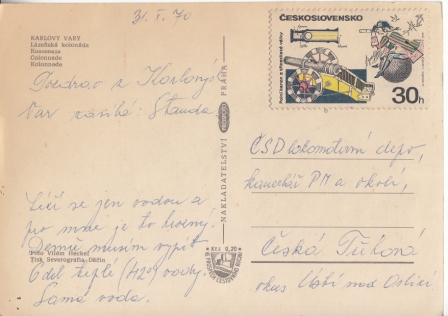 31. I. 70
KARLOVY VARY
Lázeňská kolonáda
Kolonnade
Colonnade
Kolonnade
Pozdrav z Karlových
Var zasílá: Standa.
Léčí se jen vodou a
pro mne je to hrozný.
Denně musím vypít
6 del teplé (42°) vody.
Samá voda.
Foto Vilém Heckel
Tisk Severografia Děčín
NAKLADATELSTVÍ
PRAHA
Kčs 0,20
ČESKOSLOVENSKO
30h
ČSD lokomotivní depo,
kancelář PM a okolí,
Česká Třebová
okres Ústí nad Orlicí